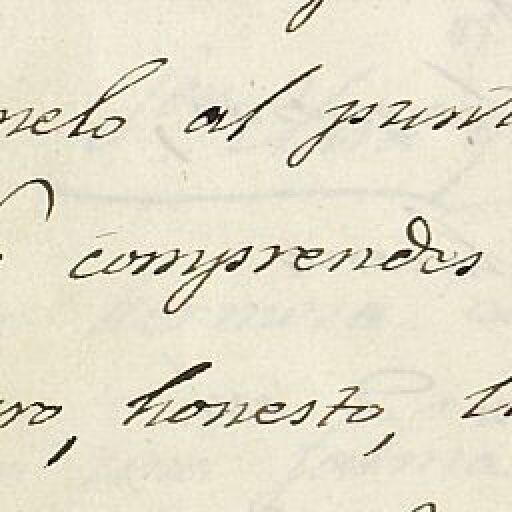 melo al punt
comprendes
ro, honesto,